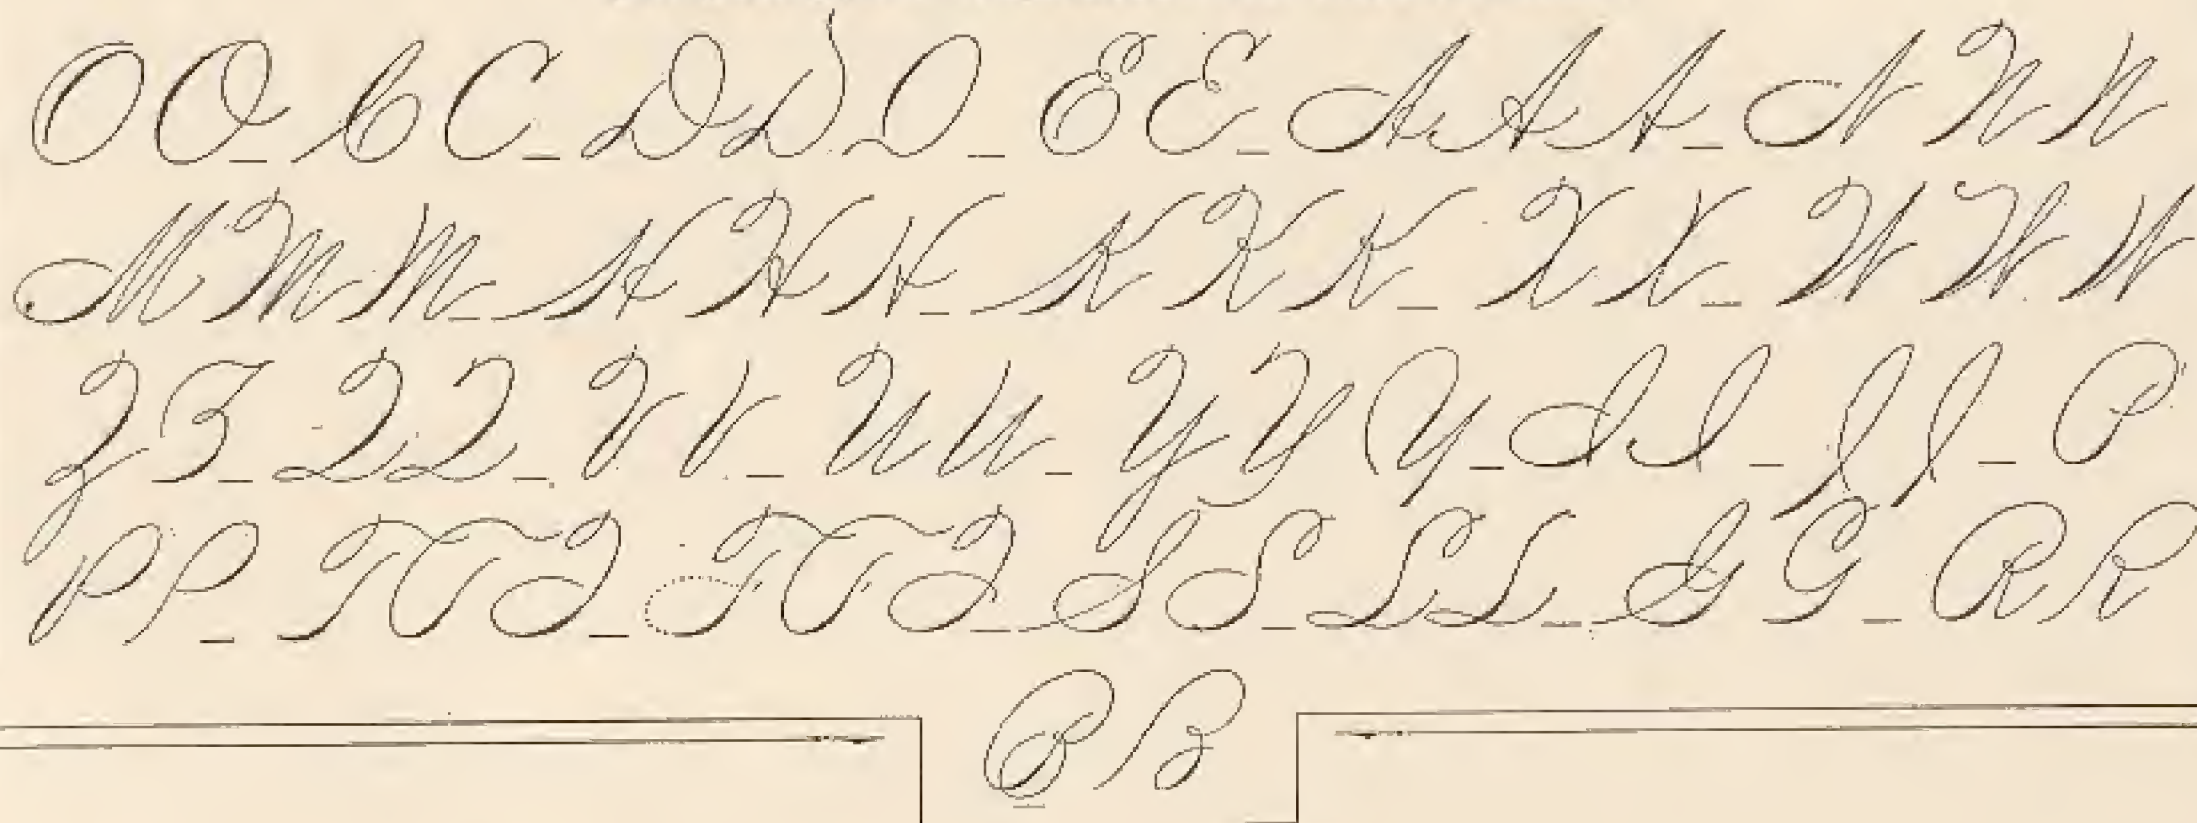 O O – C C – D D O – E E – A A A – N N N
M M M – H H H – K K K – X X – W W W
Z Z – Q Q – V V – U U – Y Y Y – I I – J J – P
P P – T T T – F F F – S S – L L – G G – R R
B B